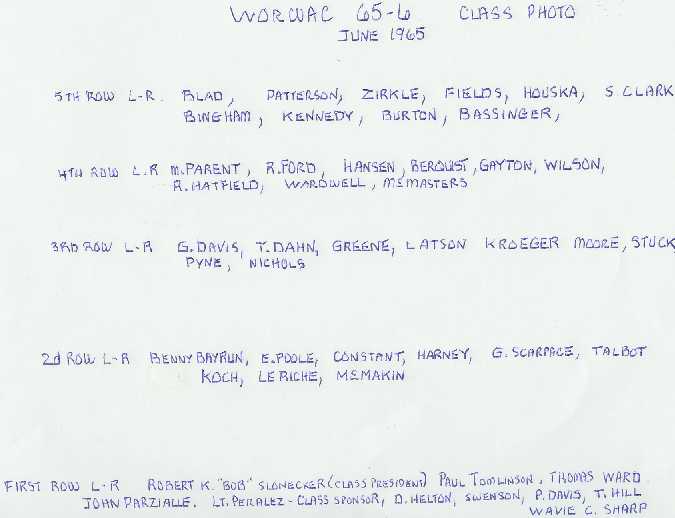 WORWAC 65-6 CLASS PHOTO
JUNE 1965
5TH ROW L-R. BLAD, PATTERSON, ZIRKLE, FIELDS, HOUSKA, S CLARK
BINGHAM, KENNEDY, BURTON, BASSINGER,
4TH ROW L.R M.PARENT, R.FORD, HANSEN, BERQUST, GAYTON, WILSON,
R.HATFIELD, WARDWELL, McMASTERS
3RD ROW L-R G.DAVIS, T.DAHN, GREENE, LATSON KROEGER MOORE, STUCK,
PYNE, NICHOLS
2d ROW L-R BENNY BAYRUN, E.POOLE, CONSTANT, HARNEY, G.SCARPACE, TALBOT
KOCH, LERICHE, McMAKIN
FIRST ROW L-R ROBERT K. "BOB" SLONECKER (CLASS PRESIDENT) PAUL TOMLINSON, THOMAS WARD
JOHN PARZIALLE. LT. PERALEZ - CLASS SPONSOR, D. HELTON, SWENSON, P. DAVIS, T. HILL
WAVIE C. SHARP